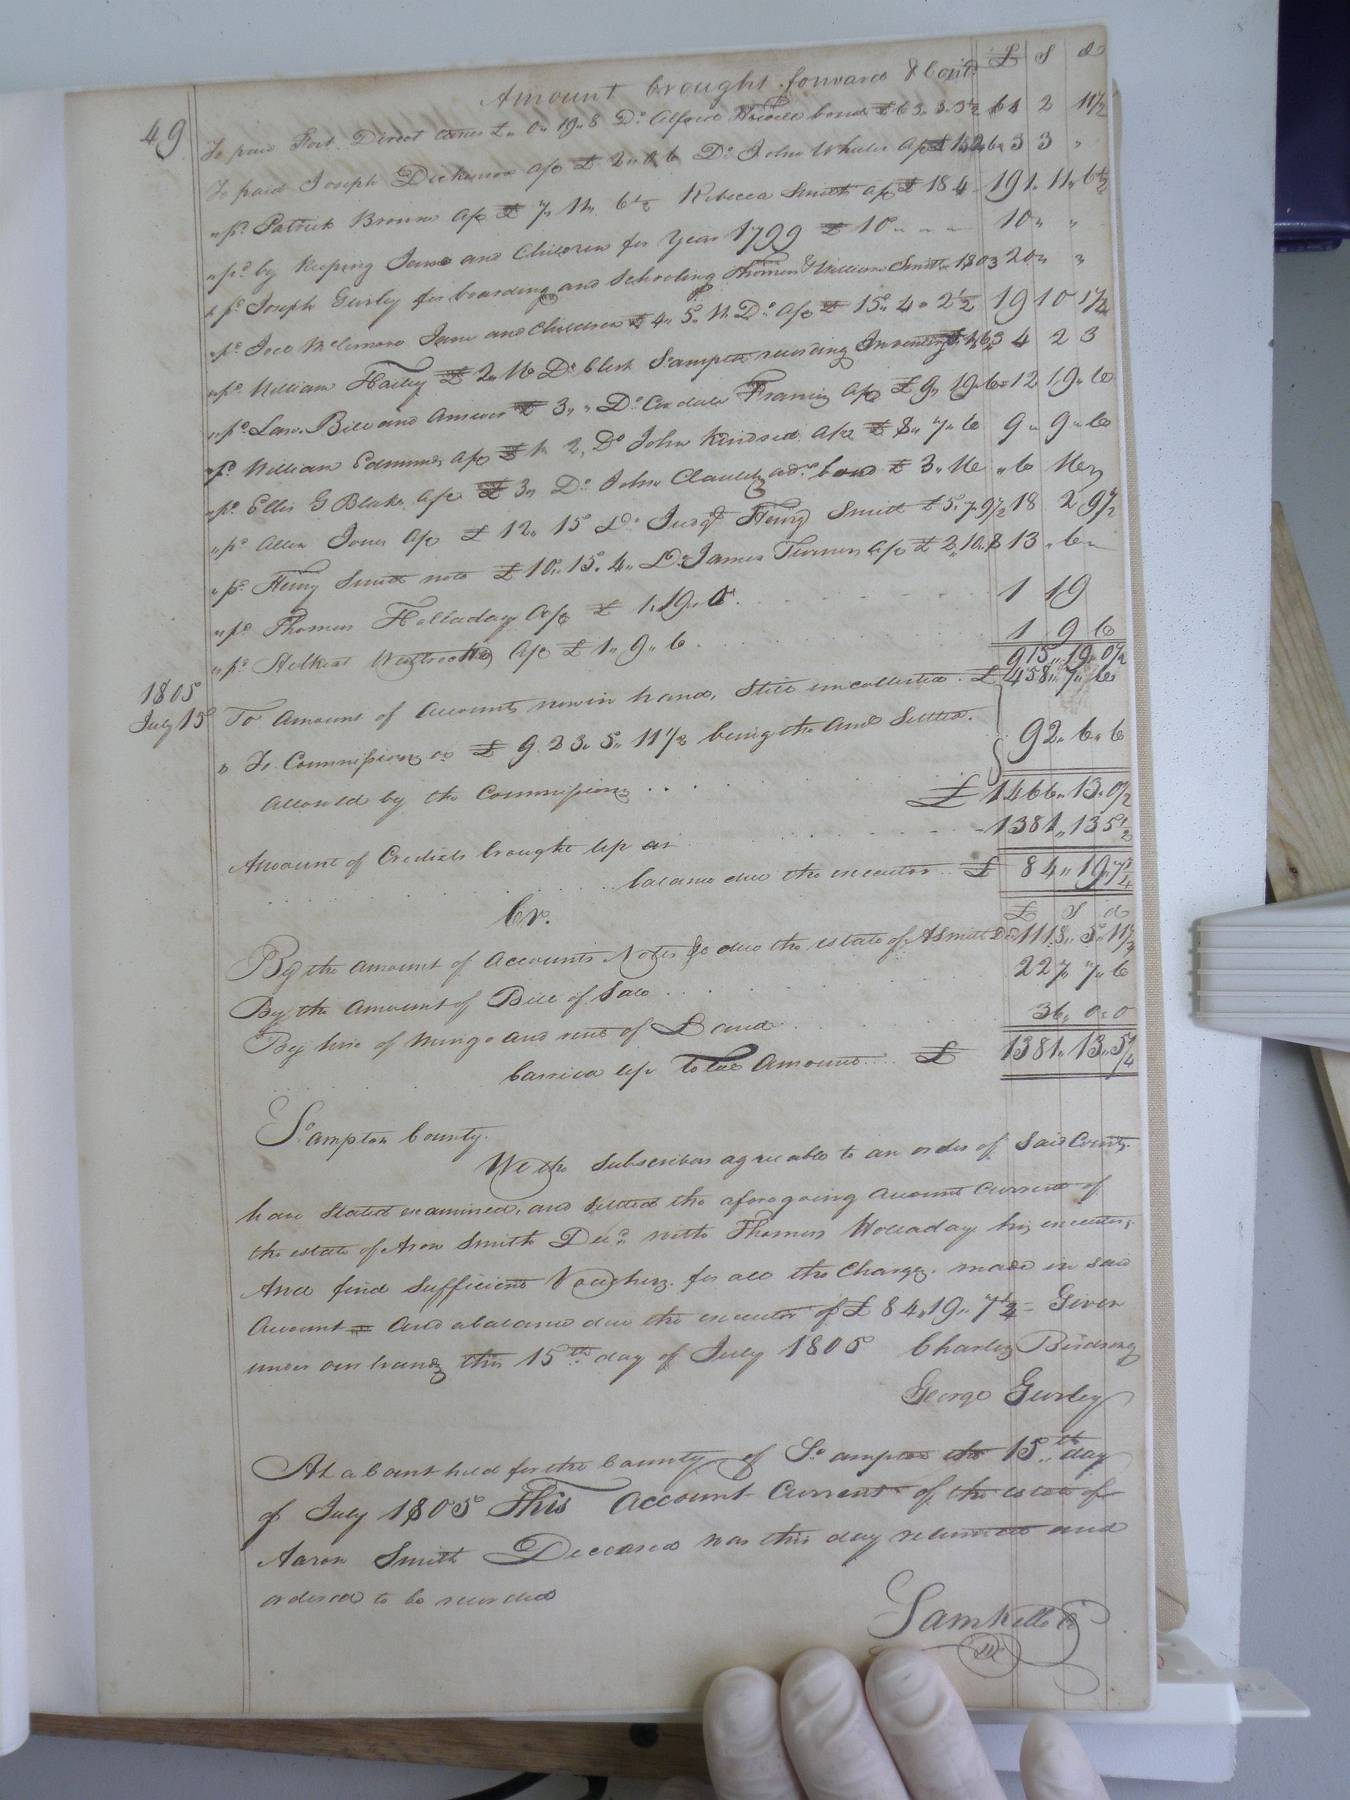 Amount brought forward & Cont.d £ S d
49
To paid Fort. Direct taxes £ 0 " 19 " 8 Do. Alfred bond £ 63. 3. 3½ 64 2 11½
To paid Joseph Dickinson a/c £ 2 " 0 6 Do. John Wheler a/c £ 3 3 "
" pd. Patrick Browne a/c £ 7 " 11 " 6½ Rebecca Smith a/c £ 184 191 " 11 " 6½
" pd. by Keeping Jane and Children for Year 1799 £ 10 " " 10 " "
" pd. Joseph Gurley for boarding and Schooling Thomas & William Smith 1803 20 " "
" pd. Jane and Children £ 4 " 5 " 11 Do. a/c £ 15 " 4 " 2½ 19 10 1½
" pd. William Hailey £ 2 " 16 Do. Clerk Sampton recording Inventory 4 2 3
" pd. Law. Bill and Answer £ 3 " " Do. Cordall Francis a/c £ 9 " 19 " 6 12 19 " 6
" pd. William Edmunds a/c £ 1 " 2, Do. John Kindred a/c £ 8 " 7 " 6 9 " 9 " 6
" pd. Ellis G Blake a/c £ 3 " Do. John Claud bond £ 3 " 16 " 6 16 "
" pd. Allen Jones a/c £ 12 " 15 Do. Judgt. Henry Smith £ 5 " 7 " 9½ 18 2 9½
" pd. Henry Smith note £ 10 " 15 " 4 " Do. James Turner a/c £ 2 " 10 " 8 13 " 6 "
" pd. Thomas Holladay a/c £ 1 " 19 " 0 1 19
" pd. a/c £ 1 " 9 " 6 1 9 6
915 " 19 " 0½
1805
July 15 To Amount of Accounts now in hand, Still uncollected. £ 458 " 7 " 6
" To Commissions on £ 923 " 5 " 11½ being the Amt Settled. 92 " 6 " 6
allowed by the Commissions
£ 1466 " 13 " 0½
Amount of Credits brought up as 1381 " 13 5½
balance due the executor £ 84 " 19 " 7½
Cr. £ S d
By the amount of accounts Notes &c due the estate of A Smith Decd 1118 " 5 " 11¼
By the Amount of Bill of Sale 227 " 7 " 6
By hire of Mingo and rent of Land 36 " 0 " 0
Carried up Total Amount £ 1381 " 13 " 5¼
So. ampton County.
We the Subscribers agreeable to an order of Said County
have Stated examined, and Settled the aforegoing Account Current of
the estate of Aron Smith Decd. with Thomas Holladay his executor
And find Sufficient Vouchers for all the Charges made in said
Account and a balance due the executor of £ 84 " 19 " 7½ Given
under our hands this 15th. day of July 1805 Charles Birdsong
George Gurley
At a Court held for the County of So. ampton the 15th. day
of July 1805 This Account Current of the estate of
Aaron Smith Deceased was this day returned and
ordered to be recorded
Sam Kello